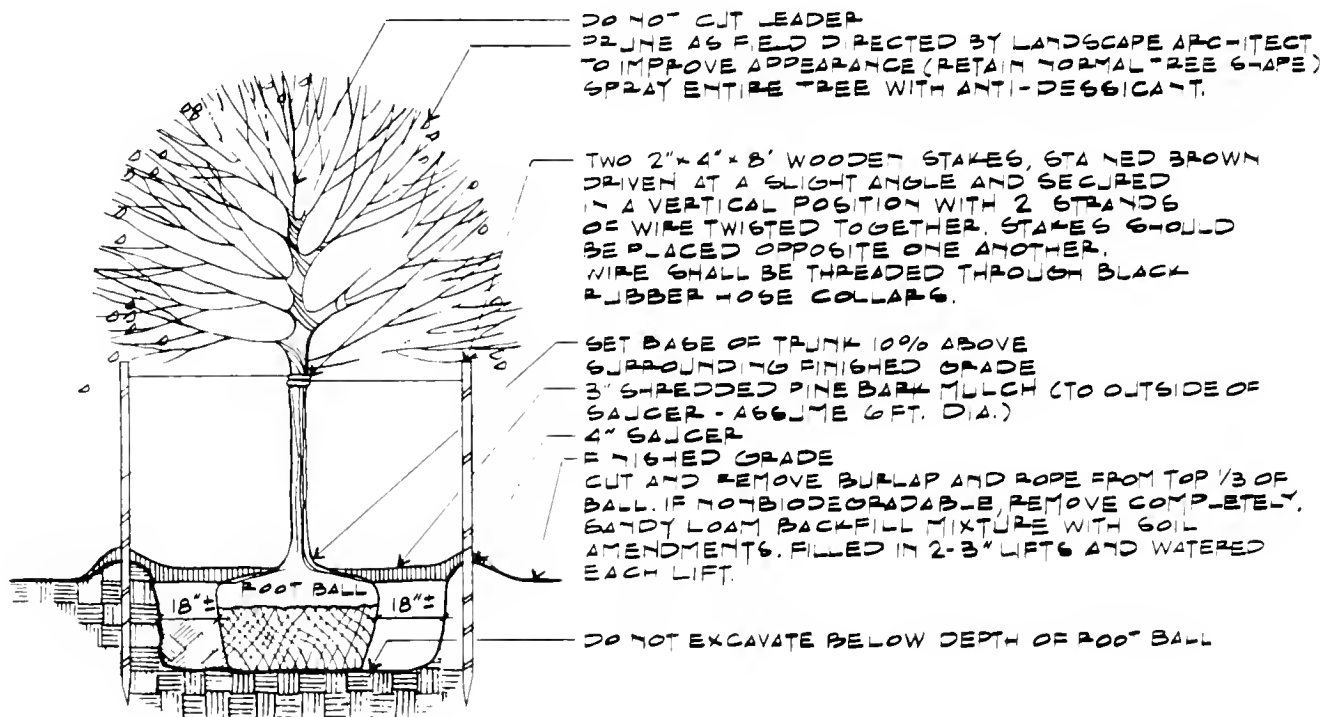 DO NOT CUT LEADER
PRUNE AS FIELD DIRECTED BY LANDSCAPE ARCHITECT
TO IMPROVE APPEARANCE (RETAIN NORMAL TREE SHAPE)
SPRAY ENTIRE TREE WITH ANTI-DESSICANT.
TWO 2" x 4" x 8' WOODEN STAKES, STAINED BROWN
DRIVEN AT A SLIGHT ANGLE AND SECURED
IN A VERTICAL POSITION WITH 2 STRANDS
OF WIRE TWISTED TOGETHER. STAKES SHOULD
BE PLACED OPPOSITE ONE ANOTHER.
WIRE SHALL BE THREADED THROUGH BLACK
RUBBER HOSE COLLARS.
SET BASE OF TRUNK 10% ABOVE
SURROUNDING FINISHED GRADE
3" SHREDDED PINE BARK MULCH (TO OUTSIDE OF
SAUCER - ASSUME 6 FT. DIA.)
4" SAUCER
FINISHED GRADE
CUT AND REMOVE BURLAP AND ROPE FROM TOP 1/3 OF
BALL. IF NONBIODEGRADABLE, REMOVE COMPLETELY.
SANDY LOAM BACKFILL MIXTURE WITH SOIL
AMENDMENTS. FILLED IN 2-3" LIFTS AND WATERED
EACH LIFT.
ROOT BALL
18"± 18"±
DO NOT EXCAVATE BELOW DEPTH OF ROOT BALL